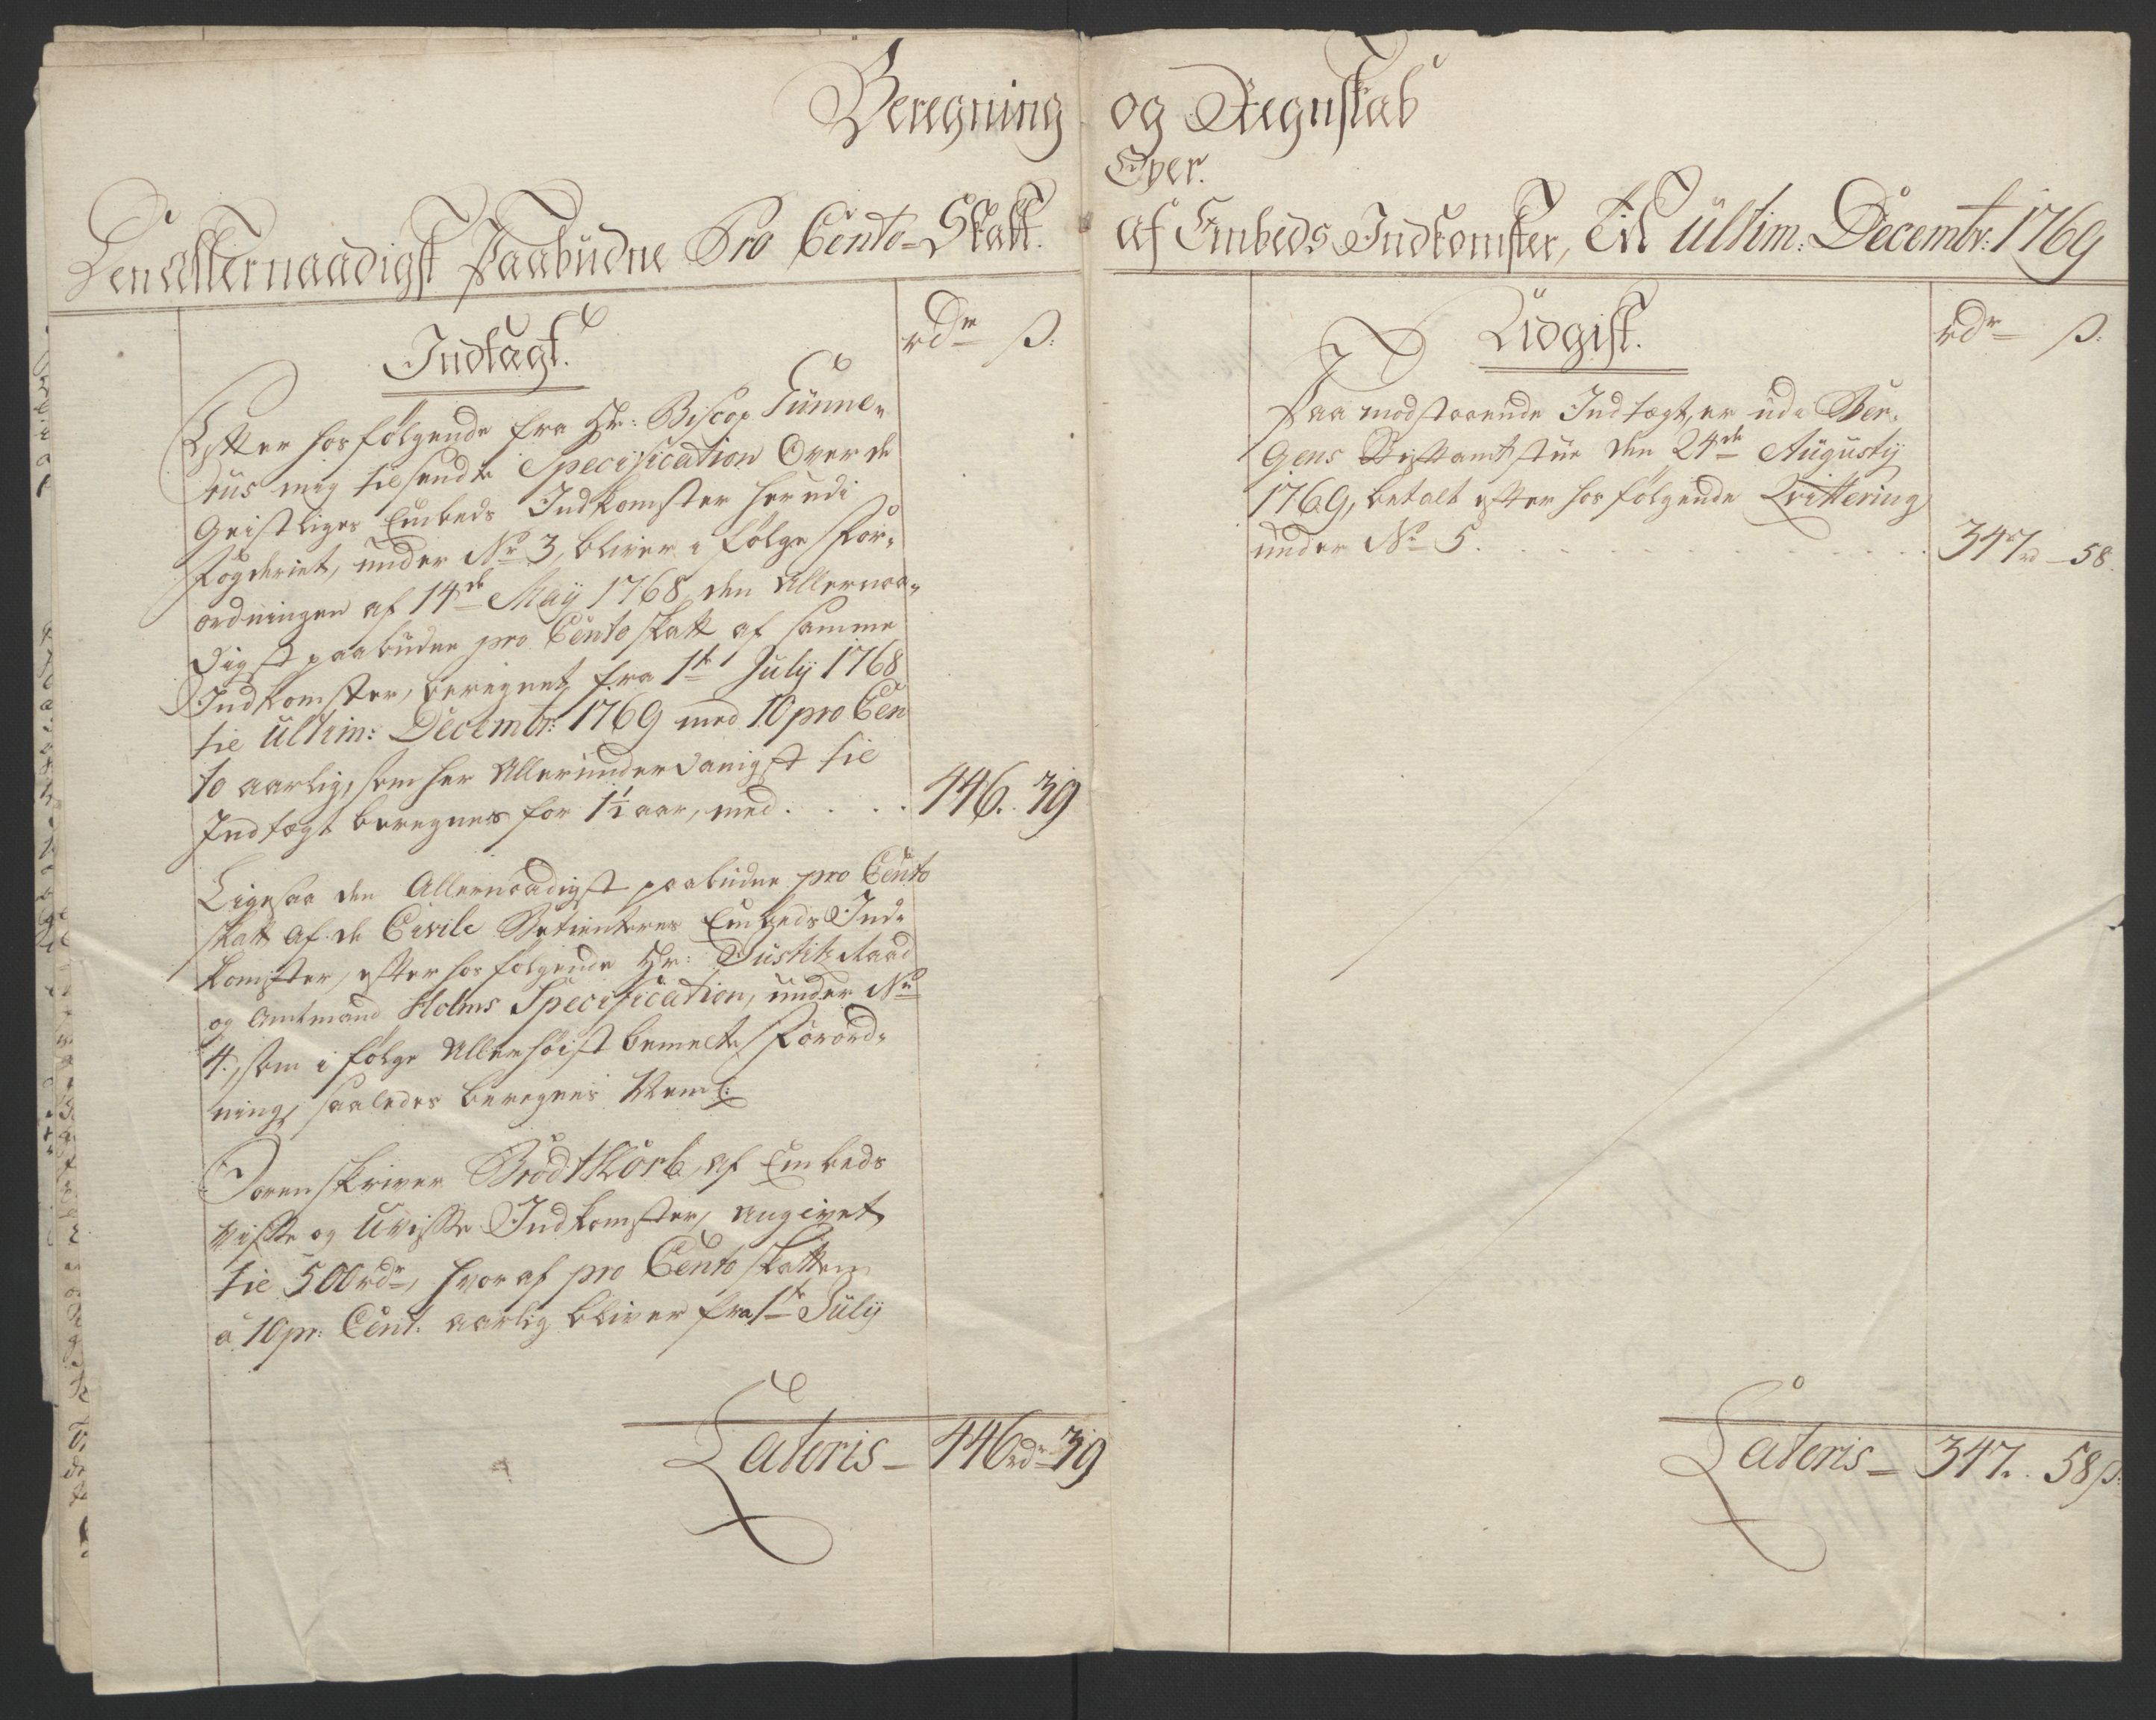 Beregning og Regnskab
Over.
Den Allernaadigst Paabudne Pro Cento-Skatt. af Embeds Indkomster, Til Ultim: Decembr: 1769
Indtægt.
rdr ß:
Efter hosfølgende fra Hr: Biscop Tünne-
rus mig tilsendte Specification Over de
Geistliges Embeds Indkomster her udi
Fogderiet, under No 3, bliver i følge For-
ordningen af 14de Maij 1768, den Allernaa-
digst paabudne pro Cento skatt af samme
Indkomster, beregnet fra 1te Julij 1768
til Ultim: Decembr: 1769 med 10 pro Cen
to aarlig, som her Allerunderdanigst til
Indtægt beregnes for 1½ aar, med . . . . 446. 39
Ligesaa den Allernaadigst paabudne pro Cento
skatt af de Civile Betienteres Embeds Ind-
komster, efter hosfølgende Hr: Justitz Raad
og Amtmand Holms Specification, under No
4, som i følge Allerhøist bemelte Forord-
ning, saaledes beregnes Neml:
Sorenskriver Brodtkorb af Embeds
visse og Uvisse Indkomster, angivet
til 500 rdr, hvoraf pro Cento skatten
a 10 pr: Cent: aarlig bliver fra 1te Julij
Lateris - 446 rdr 39
Udgift.
rdr ß:
Paa modstaaende Indtægt, er udi Ber-
gens Stiftamtstue den 24de Augustij
1769, betalt efter hosfølgende Qvittering
under No 5. . . . . . . . . . 347 rd - 58.
Lateris - 347. 58 ß: